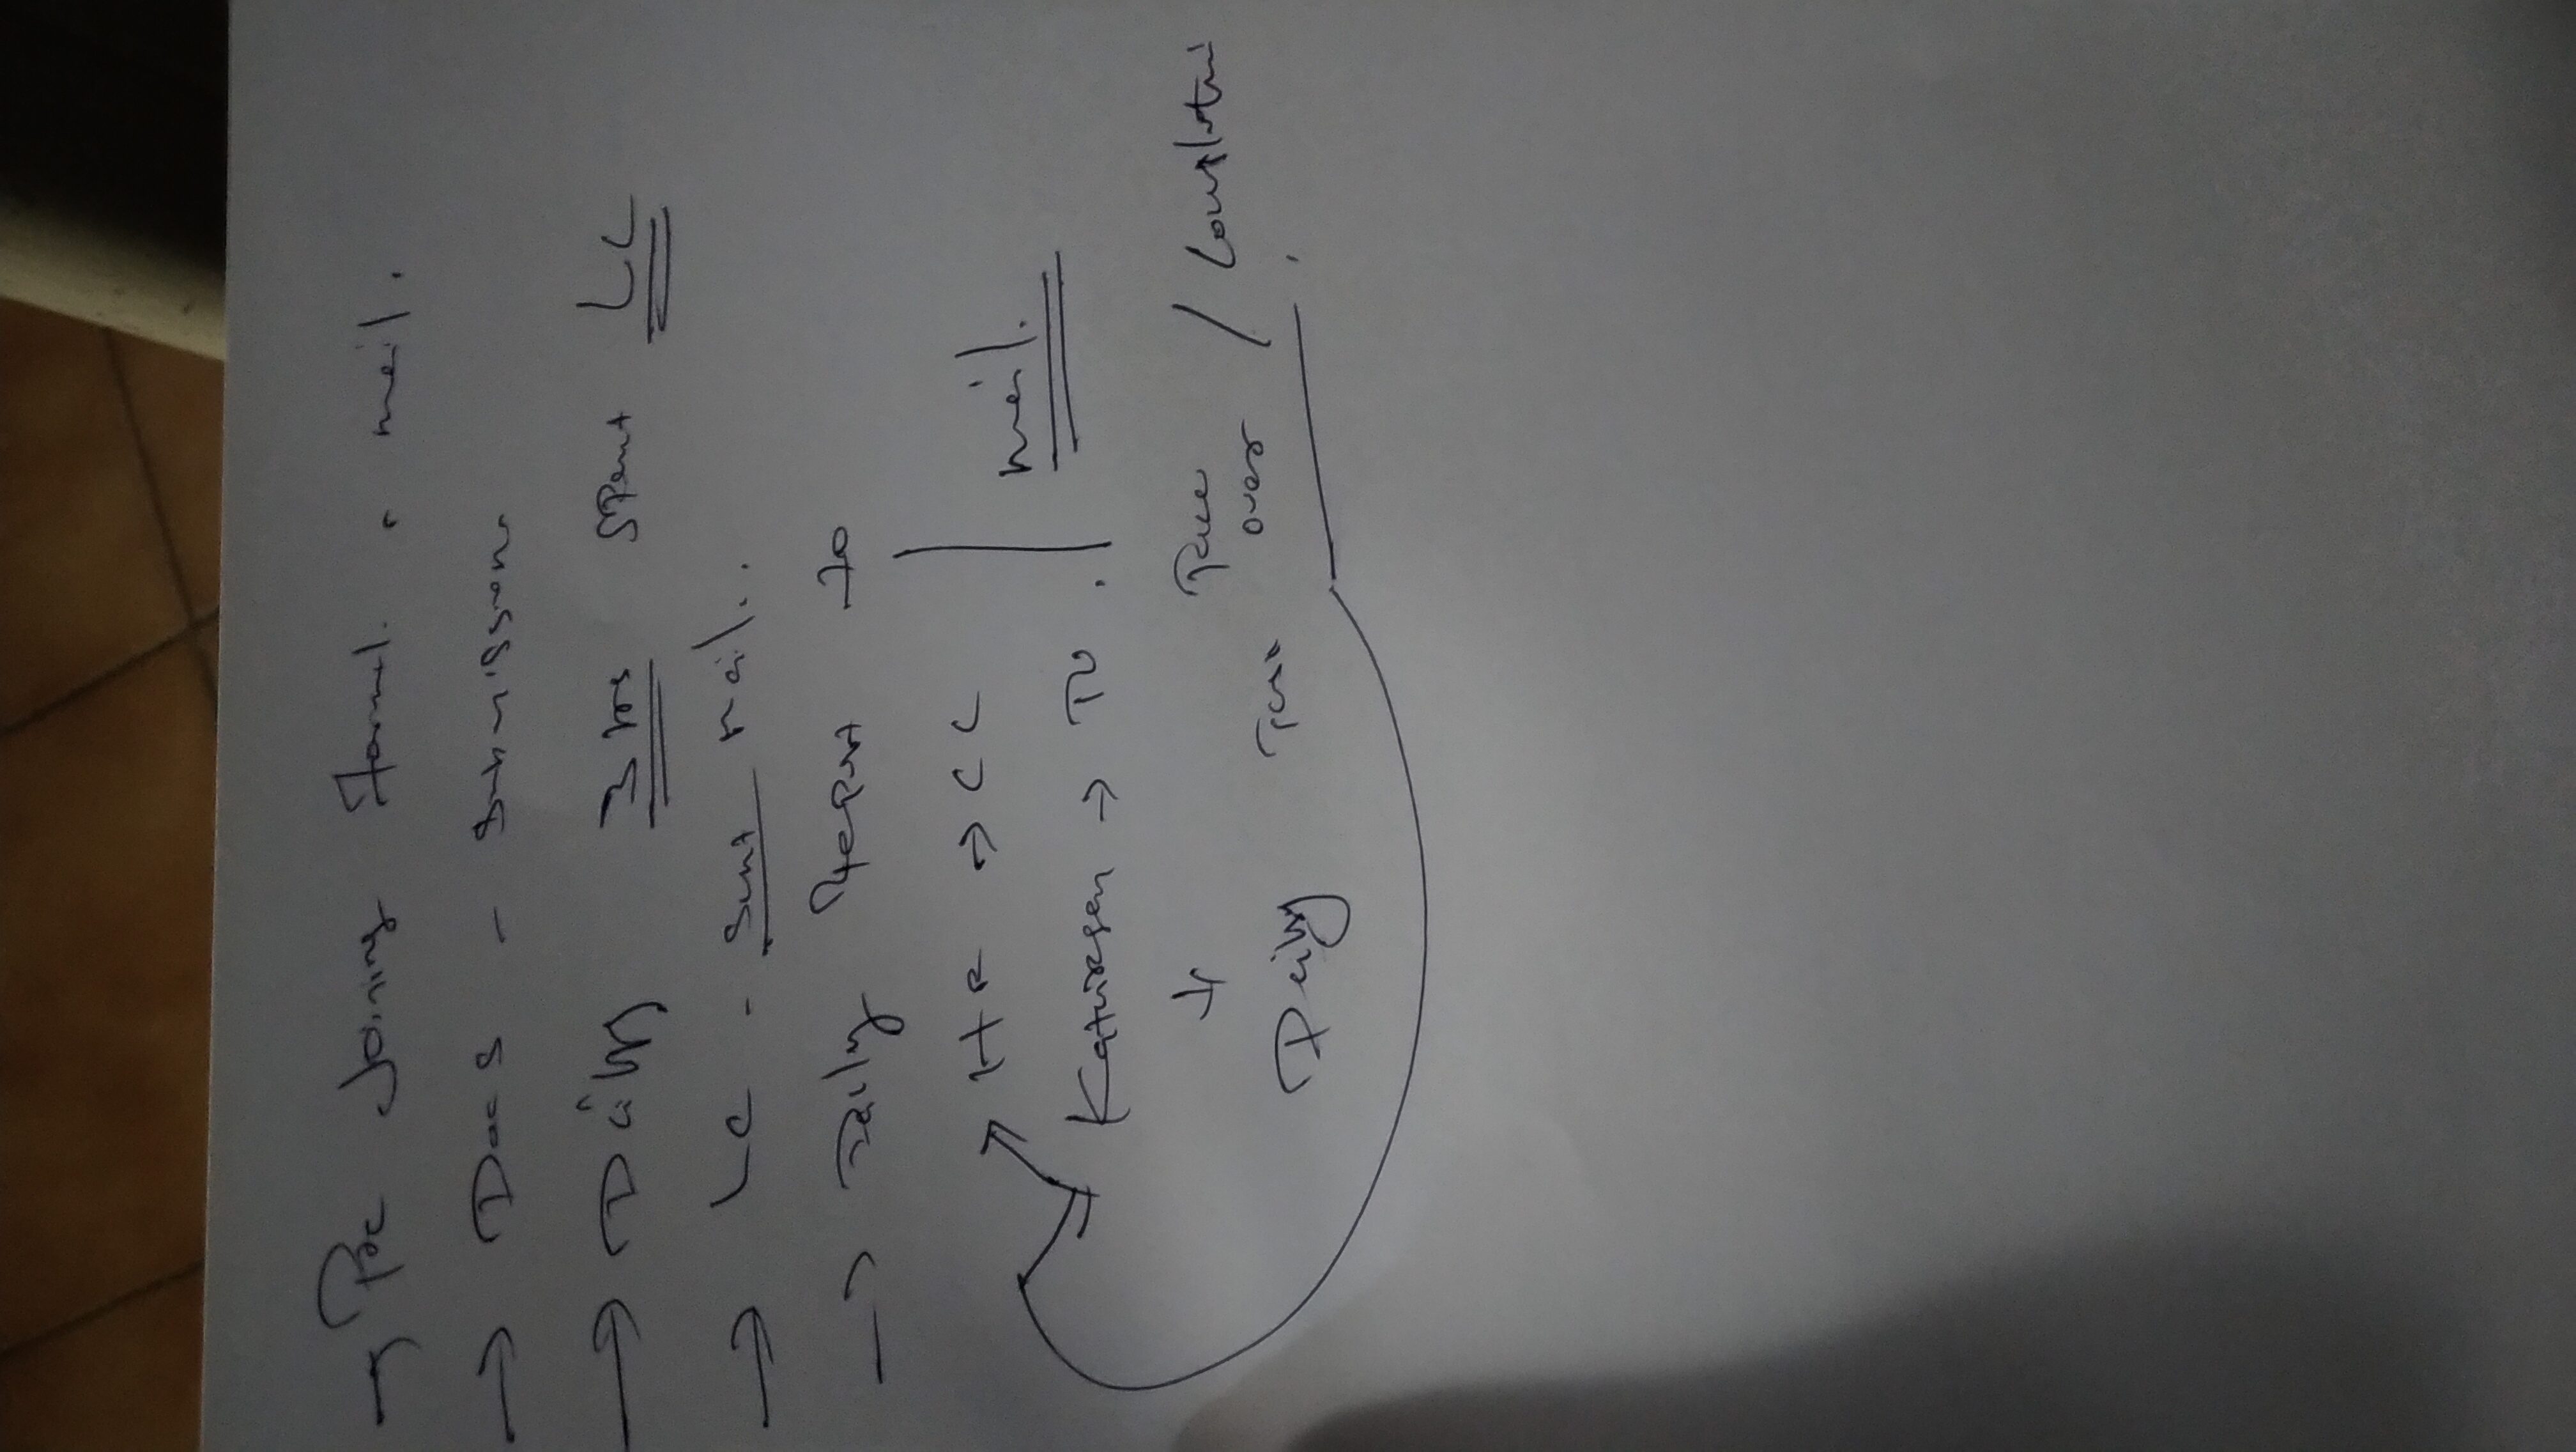 → Pre Joining Formal. - mail.
→ Docs - Submission
→ Daily 3 hrs spent LC
→ LC - sent mail..
→ Daily report to
HR → CC
Kathiresan → TO .
mail.
↓
Daily Task Take over / Completion